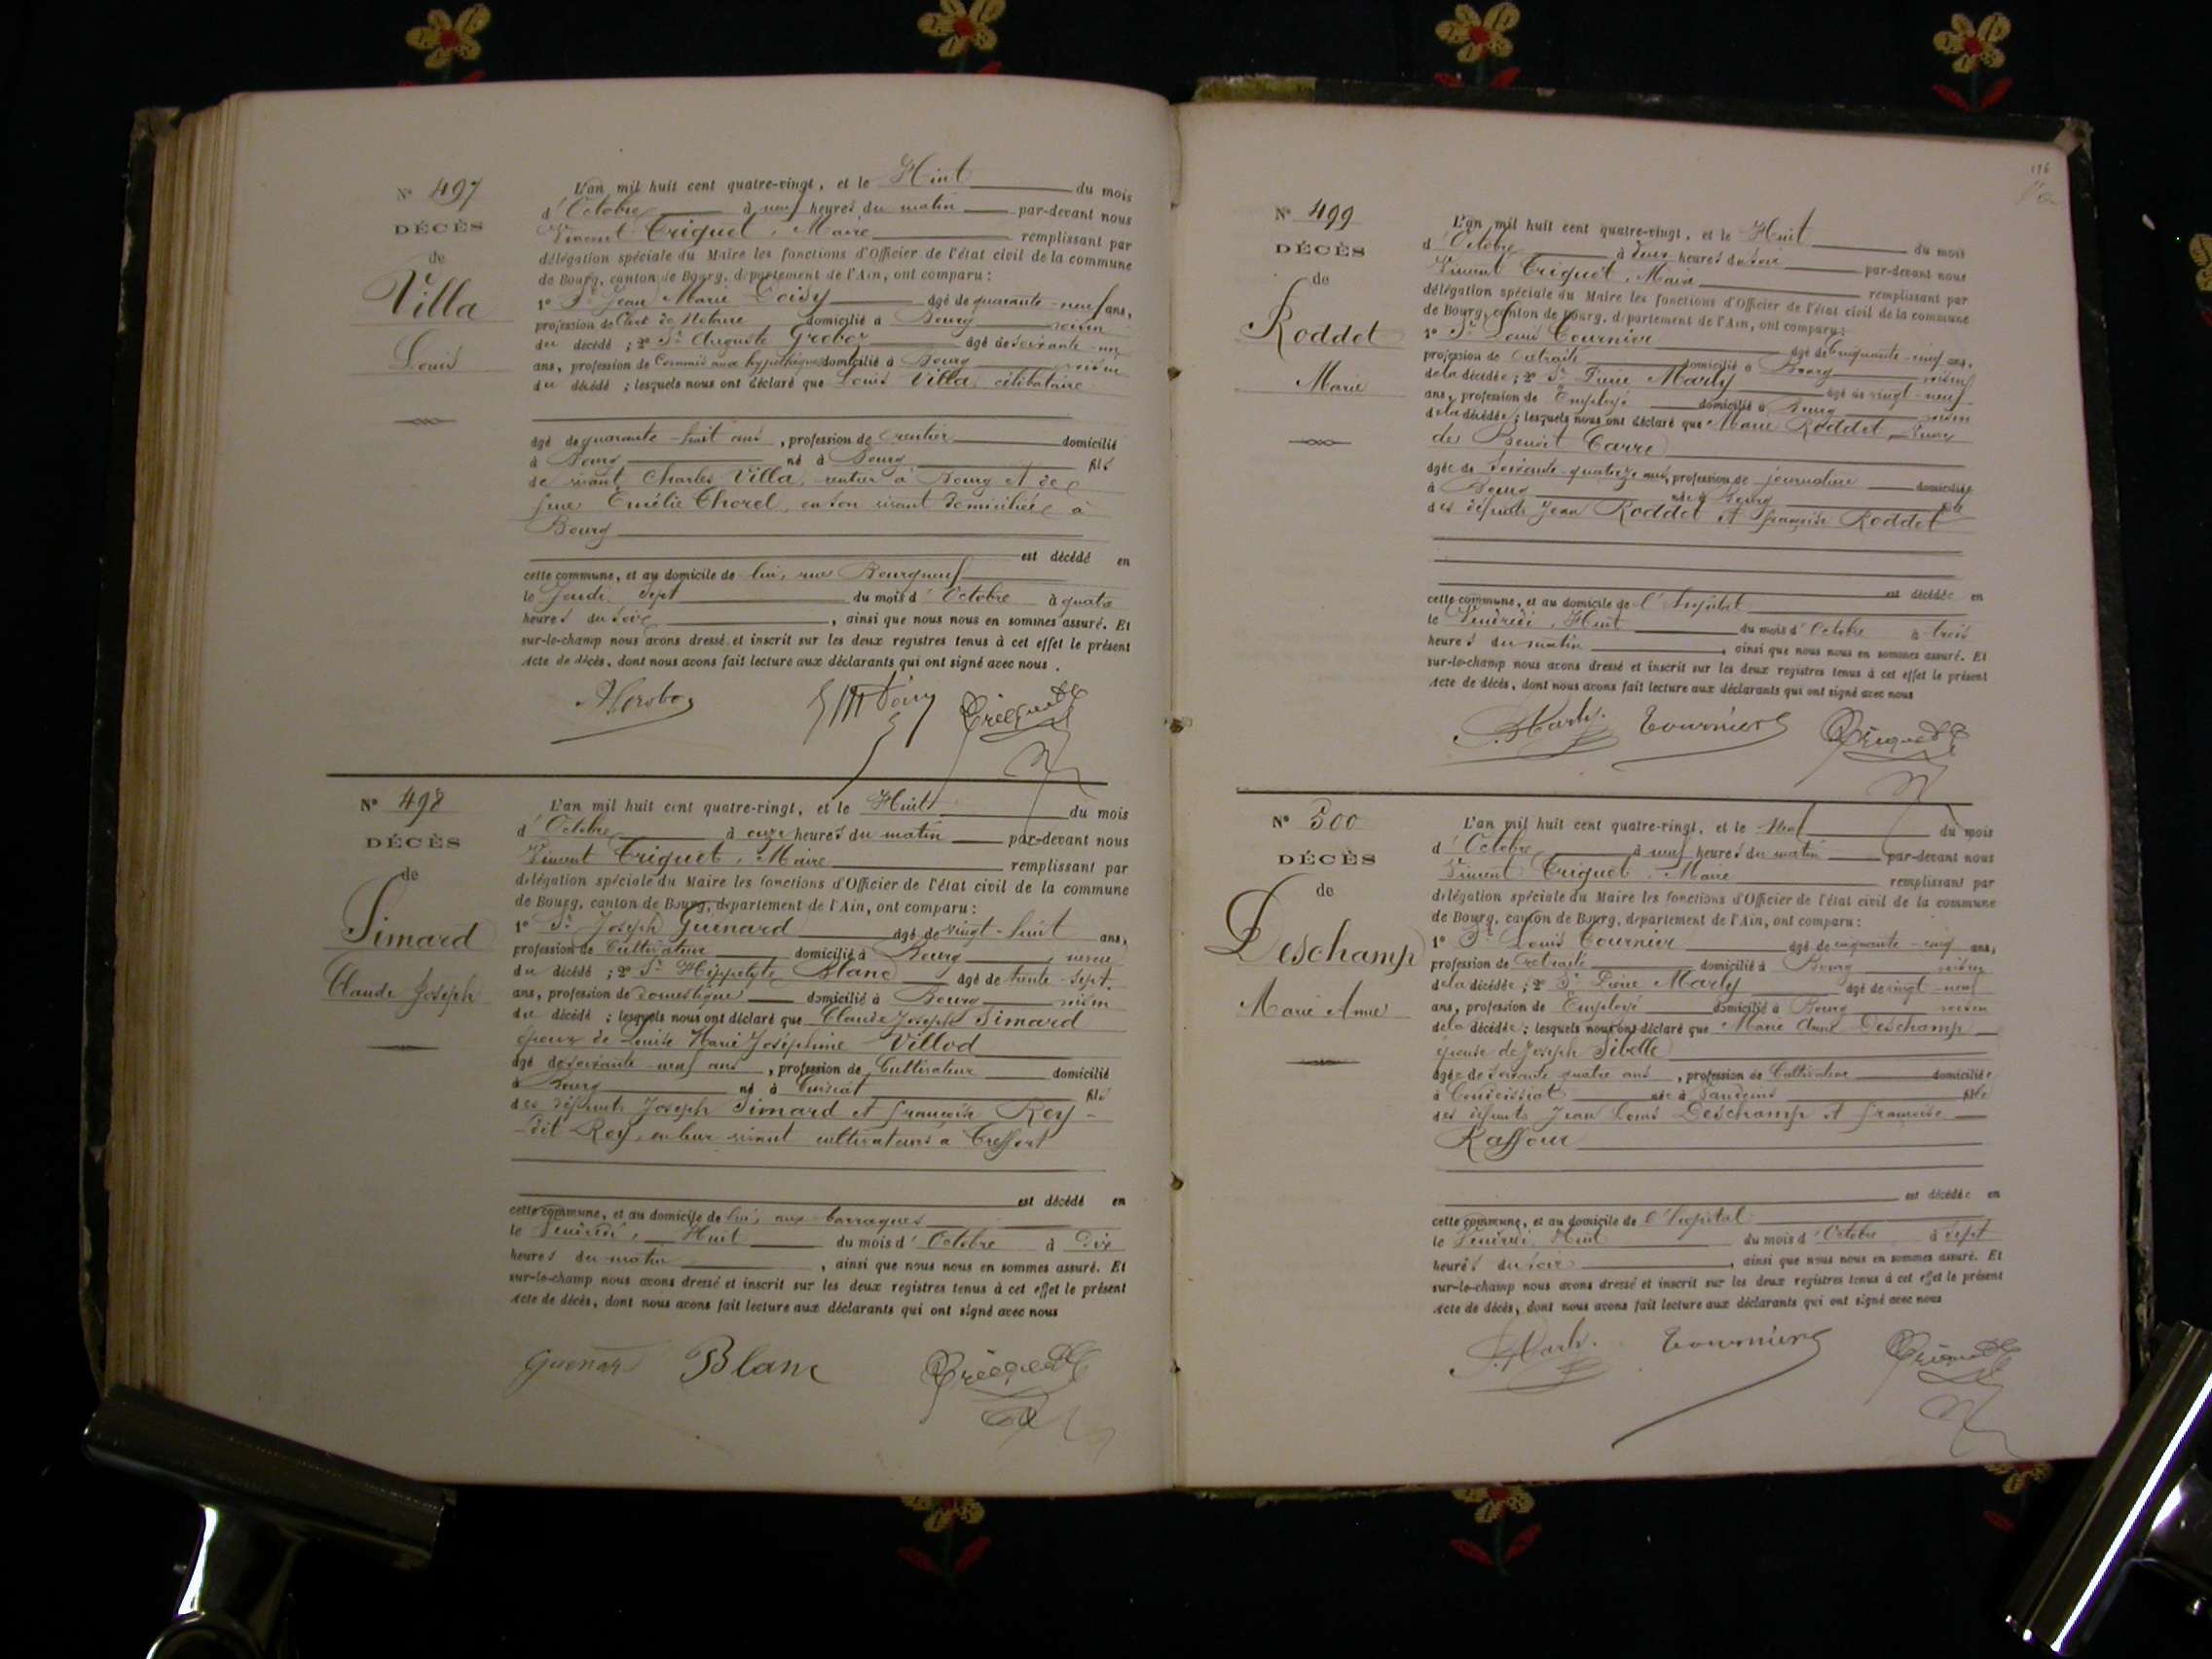 N° 497
DÉCÈS
de
Villa
Louis
L'an mil huit cent quatre-vingt, et le Huit du mois
d'Octobre à neuf heures du matin par-devant nous
Vincent Triquet, Maire remplissant par
délégation spéciale du Maire les fonctions d'Officier de l'état civil de la commune
de Bourg, canton de Bourg, département de l'Ain, ont comparu :
1° Sr Jean Marie Doisy âgé de quarante-neuf ans,
profession de Clerc de Notaire domicilié à Bourg voisin
du décédé ; 2° Sr Auguste Groboz âgé de soixante-un
ans, profession de Commis aux hypothèques domicilié à Bourg voisin
du décédé ; lesquels nous ont déclaré que Louis Villa, célibataire
âgé de quarante-huit ans, profession de rentier domicilié
à Bourg né à Bourg fils
de vivant Charles Villa, rentier à Bourg et de
feue Emélie Chorel, en son vivant domiciliée à
Bourg
est décédé en
cette commune, et au domicile de lui, rue Bourgneuf
le Jeudi Sept du mois d'Octobre à quatre
heures du soir, ainsi que nous nous en sommes assuré. Et
sur-le-champ nous avons dressé et inscrit sur les deux registres tenus à cet effet le présent
Acte de décès, dont nous avons fait lecture aux déclarants qui ont signé avec nous.
AGroboz Triquet
N° 498
DÉCÈS
de
Simard
Claude Joseph
L'an mil huit cent quatre-vingt, et le Huit du mois
d'Octobre à onze heures du matin par-devant nous
Vincent Triquet, Maire remplissant par
délégation spéciale du Maire les fonctions d'Officier de l'état civil de la commune
de Bourg, canton de Bourg, département de l'Ain, ont comparu :
1° Sr Joseph Guénard âgé de vingt-huit ans,
profession de Cultivateur domicilié à Bourg, neveu
du décédé ; 2° Sr Hippolyte Blanc âgé de trente-sept
ans, profession de domestique domicilié à Bourg voisin
du décédé ; lesquels nous ont déclaré que Claude Joseph Simard
époux de Louise Marie Joséphine Villod
âgé de soixante-neuf ans, profession de Cultivateur domicilié
à Bourg né à Cuisiat fils
des défunts Joseph Simard et Françoise Rey-
dit Rey, en leur vivant cultivateurs à Treffort
est décédé en
cette commune, et au domicile de lui, aux barraques
le Vendredi, Huit du mois d'Octobre à Dix
heures du matin, ainsi que nous nous en sommes assuré. Et
sur-le-champ nous avons dressé et inscrit sur les deux registres tenus à cet effet le présent
Acte de décès, dont nous avons fait lecture aux déclarants qui ont signé avec nous
Guenard Blanc Triquet
196
N° 499
DÉCÈS
de
Roddet
Marie
L'an mil huit cent quatre-vingt, et le Huit du mois
d'Octobre à deux heures du soir par-devant nous
Vincent Triquet, Maire remplissant par
délégation spéciale du Maire les fonctions d'Officier de l'état civil de la commune
de Bourg, canton de Bourg, département de l'Ain, ont comparu :
1° Sr Louis Tournier âgé de cinquante-neuf ans,
profession de retraité domicilié à Bourg voisin
de la décédée ; 2° Sr Pierre Marly âgé de vingt-neuf
ans, profession de Employé domicilié à Bourg voisin
de la décédée ; lesquels nous ont déclaré que Marie Roddet, veuve
de Benoit Carre
âgée de Soixante-quatorze ans, profession de journalière domiciliée
à Bourg née à Bourg fille
des défunts Jean Roddet et Françoise Roddet
est décédée en
cette commune, et au domicile de l'hôpital
le Vendredi, Huit du mois d'Octobre à trois
heures du matin, ainsi que nous nous en sommes assuré. Et
sur-le-champ nous avons dressé et inscrit sur les deux registres tenus à cet effet le présent
Acte de décès, dont nous avons fait lecture aux déclarants qui ont signé avec nous
P. Marly. Tournier Triquet
N° 500
DÉCÈS
de
Deschamp
Marie Anne
L'an mil huit cent quatre-vingt, et le Neuf du mois
d'Octobre à neuf heures du matin par-devant nous
Vincent Triquet, Maire remplissant par
délégation spéciale du Maire les fonctions d'Officier de l'état civil de la commune
de Bourg, canton de Bourg, département de l'Ain, ont comparu :
1° Sr Louis Tournier âgé de cinquante-neuf ans,
profession de retraité domicilié à Bourg voisin
de la décédée ; 2° Sr Pierre Marly âgé de vingt-neuf
ans, profession de Employé domicilié à Bourg voisin
de la décédée ; lesquels nous ont déclaré que Marie Anne Deschamp
épouse de Joseph Sibelle
âgée de soixante quatre ans, profession de Cultivateur domiciliée
à Condeissiat née à Vandeins fille
des défunts Jean Louis Deschamp et Françoise
Raffour
est décédée en
cette commune, et au domicile de l'hôpital
le Vendredi Huit du mois d'Octobre à sept
heures du soir, ainsi que nous nous en sommes assuré. Et
sur-le-champ nous avons dressé et inscrit sur les deux registres tenus à cet effet le présent
Acte de décès, dont nous avons fait lecture aux déclarants qui ont signé avec nous
P. Marly. Tournier Triquet